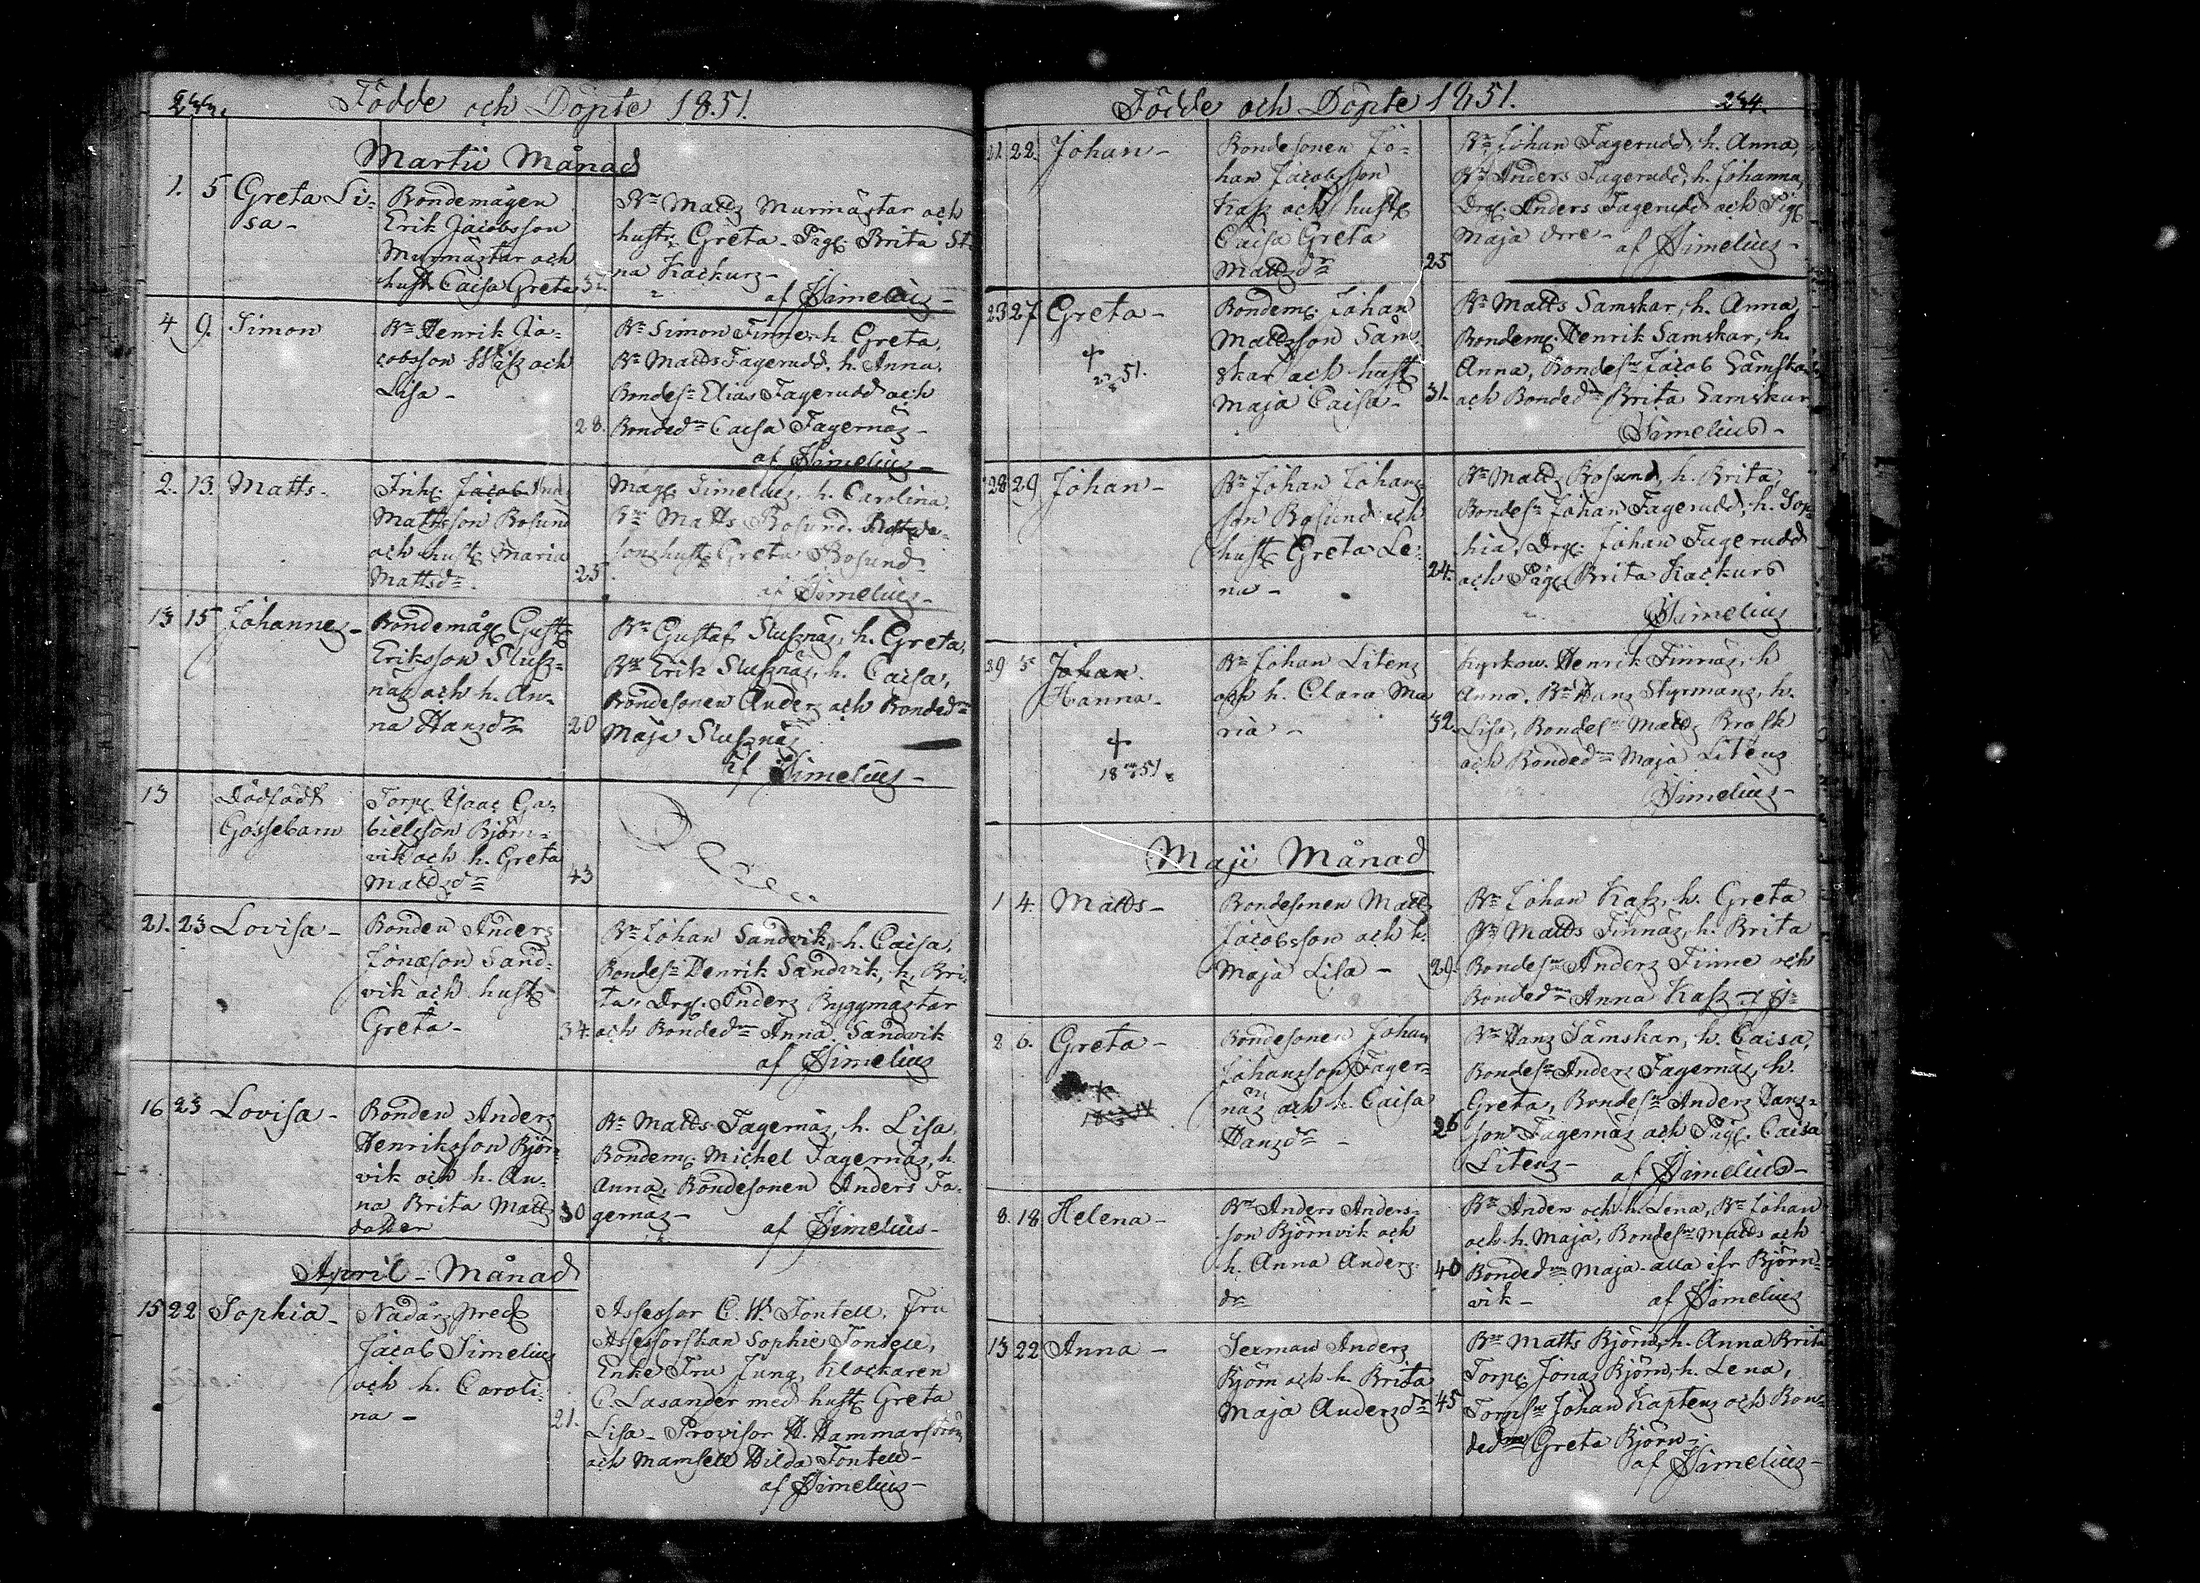 233.
Födde och Döpte 1851.
Martii Månad
1. 5 Greta Li-
sa -
Bondemågen
Erik Jacobsson
Murmästar och
hust. Caisa Greta
Bn Matts Murmästar och
hustr. Greta. Pig. Brita Sti
na Kackurs -
af Simelius -
4 9. Simon
Bn Henrik Ja-
cobsson och
Lisa -
28.
Bn Simon Finne, h. Greta,
Bn Matts Fagerudd, h. Anna,
Bondes. Elias Fagerudd och
Bonded. Caisa Fagernäs -
af Simelius -
2. 13. Matts -
Inh. Jacob
Mattsson Rosund
och hust. Maria
Mattsdr.
25.
Mag. Simelius, h. Carolina,
Bn Matts Rosund.
sons hust. Greta Rosund
Simelius -
13 15 Johannes -
Bondemåg Gust.
Eriksson Slussnäs
näs och h. An-
na Hansdr
20
Bn Gustaf Slussnäs, h. Greta,
Bn Erik Slussnäs, h. Caisa,
Bondesonen Anders och Bonded.
Maja Slussnäs
af Simelius -
13 Dödfödt
Gossebarn
Torp. Isaac Ga-
brielsson Björn-
vik och h. Greta
Mattsdr
43
21. 23 Lovisa -
Bonden Anders
Jonæson Sand-
vik och hust.
Greta -
34.
Bn Johan Sandvik, h. Caisa,
Bondes. Henrik Sandvik, h. Bri-
ta, Drg. Anders Byggmästar
och Bonded. Anna Sandvik
af Simelius
16 23 Lovisa -
Bonden Anders
Henriksson Björn-
vik och h. An-
na Brita Matts
dotter
30
Bn Matts Fagernäs, h. Lisa,
Bondem. Michel Fagernäs, h.
Anna, Bondesonen Anders Fa-
gernäs -
af Simelius -
April - Månad
15 22 Sophia -
Nådårspred.
Jacob Simelius
och h. Caroli-
na -
21.
Assessor C. W. Fontell, Fru
Assessorskan Sophie Fontell,
Enke Fru Jung, Klockaren
C. Lasander med hust. Greta
Lisa - Provisor H. Hammarström
och Mamsell Hilda Fontell -
af Simelius -
234.
Födde och Döpte 1851.
21. 22. Johan -
Bondesonen Jo-
han Jacobsson
Kass och hust.
Caisa Greta
Mattsdr
25
Bn Johan Fagerudd, h. Anna,
Bn Anders Fagerudd, h. Johanna,
Drg. Anders Fagerudd och Pig.
Maja Orre -
af Simelius -
23 27 Greta -
51.
Bondem. Johan
Mattsson Sam-
skar och hust.
Maja Caisa -
31.
Bn Matts Samskar, h. Anna,
Bondem. Henrik Samskar, h.
Anna, Bondes. Jacob Samskar
och Bonded. Brita Samskar
Simelius -
28 29 Johan -
Bn Johan Johans
son Rosund och
hust. Greta Le-
na -
24.
Bn Matts Rosund, h. Brita,
Bondes. Johan Fagerudd, h. Sop-
hia, Drg. Johan Fagerudd
och Pig. Brita Kackurs
Simelius
29 5 Johan.
Hanna -
18 51.
Bn Johan Litens
och h. Clara Ma
ria -
32.
Kyrkow. Henrik Finnäs, h
Anna. Bn Hans Styrmans, h.
Lisa, Bondes. Matts Brask
och Bonded. Maja Litens
Simelius -
Maji Månad
1 4. Matts -
Bondesonen Matts
Jacobsson och h.
Maja Lisa -
29.
Bn Johan Kass, h. Greta
Bn Matts Finnäs, h. Brita
Bondes. Anders Finne och
Bonded. Anna Kass
2 6. Greta -
Bondesonen Johan
Johansson Fager-
näs och h. Caisa
Hansdr -
26
Bn Hans Samskar, h. Caisa,
Bondes. Anders Fagernäs, h.
Greta, Bondes. Anders Hans-
son Fagernäs och Pig. Caisa
Litens -
af Simelius -
8. 18 Helena -
Bn Anders Anders-
son Björnvik och
h. Anna Anders
dr
40
Bn Anders och h. Lena, Bn Johan
och h. Maja, Bondes. Matts och
Bonded. Maja - alla ifr Björn-
vik -
af Simelius
13 22 Anna -
Sexman Anders
Björn och h. Brita
Maja Andersdr
45
Bn Matts Björn, h. Anna Brita
Torp. Jonas Björn, h. Lena,
Torps. Johan Kaptens och Bon-
ded. Greta Björn -
af Simelius -